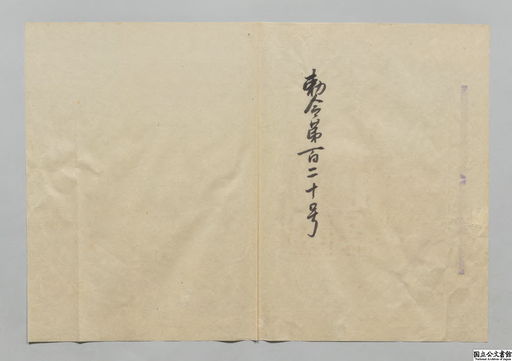 勅令第百二十号
国立公文書館
National Archives of Japan